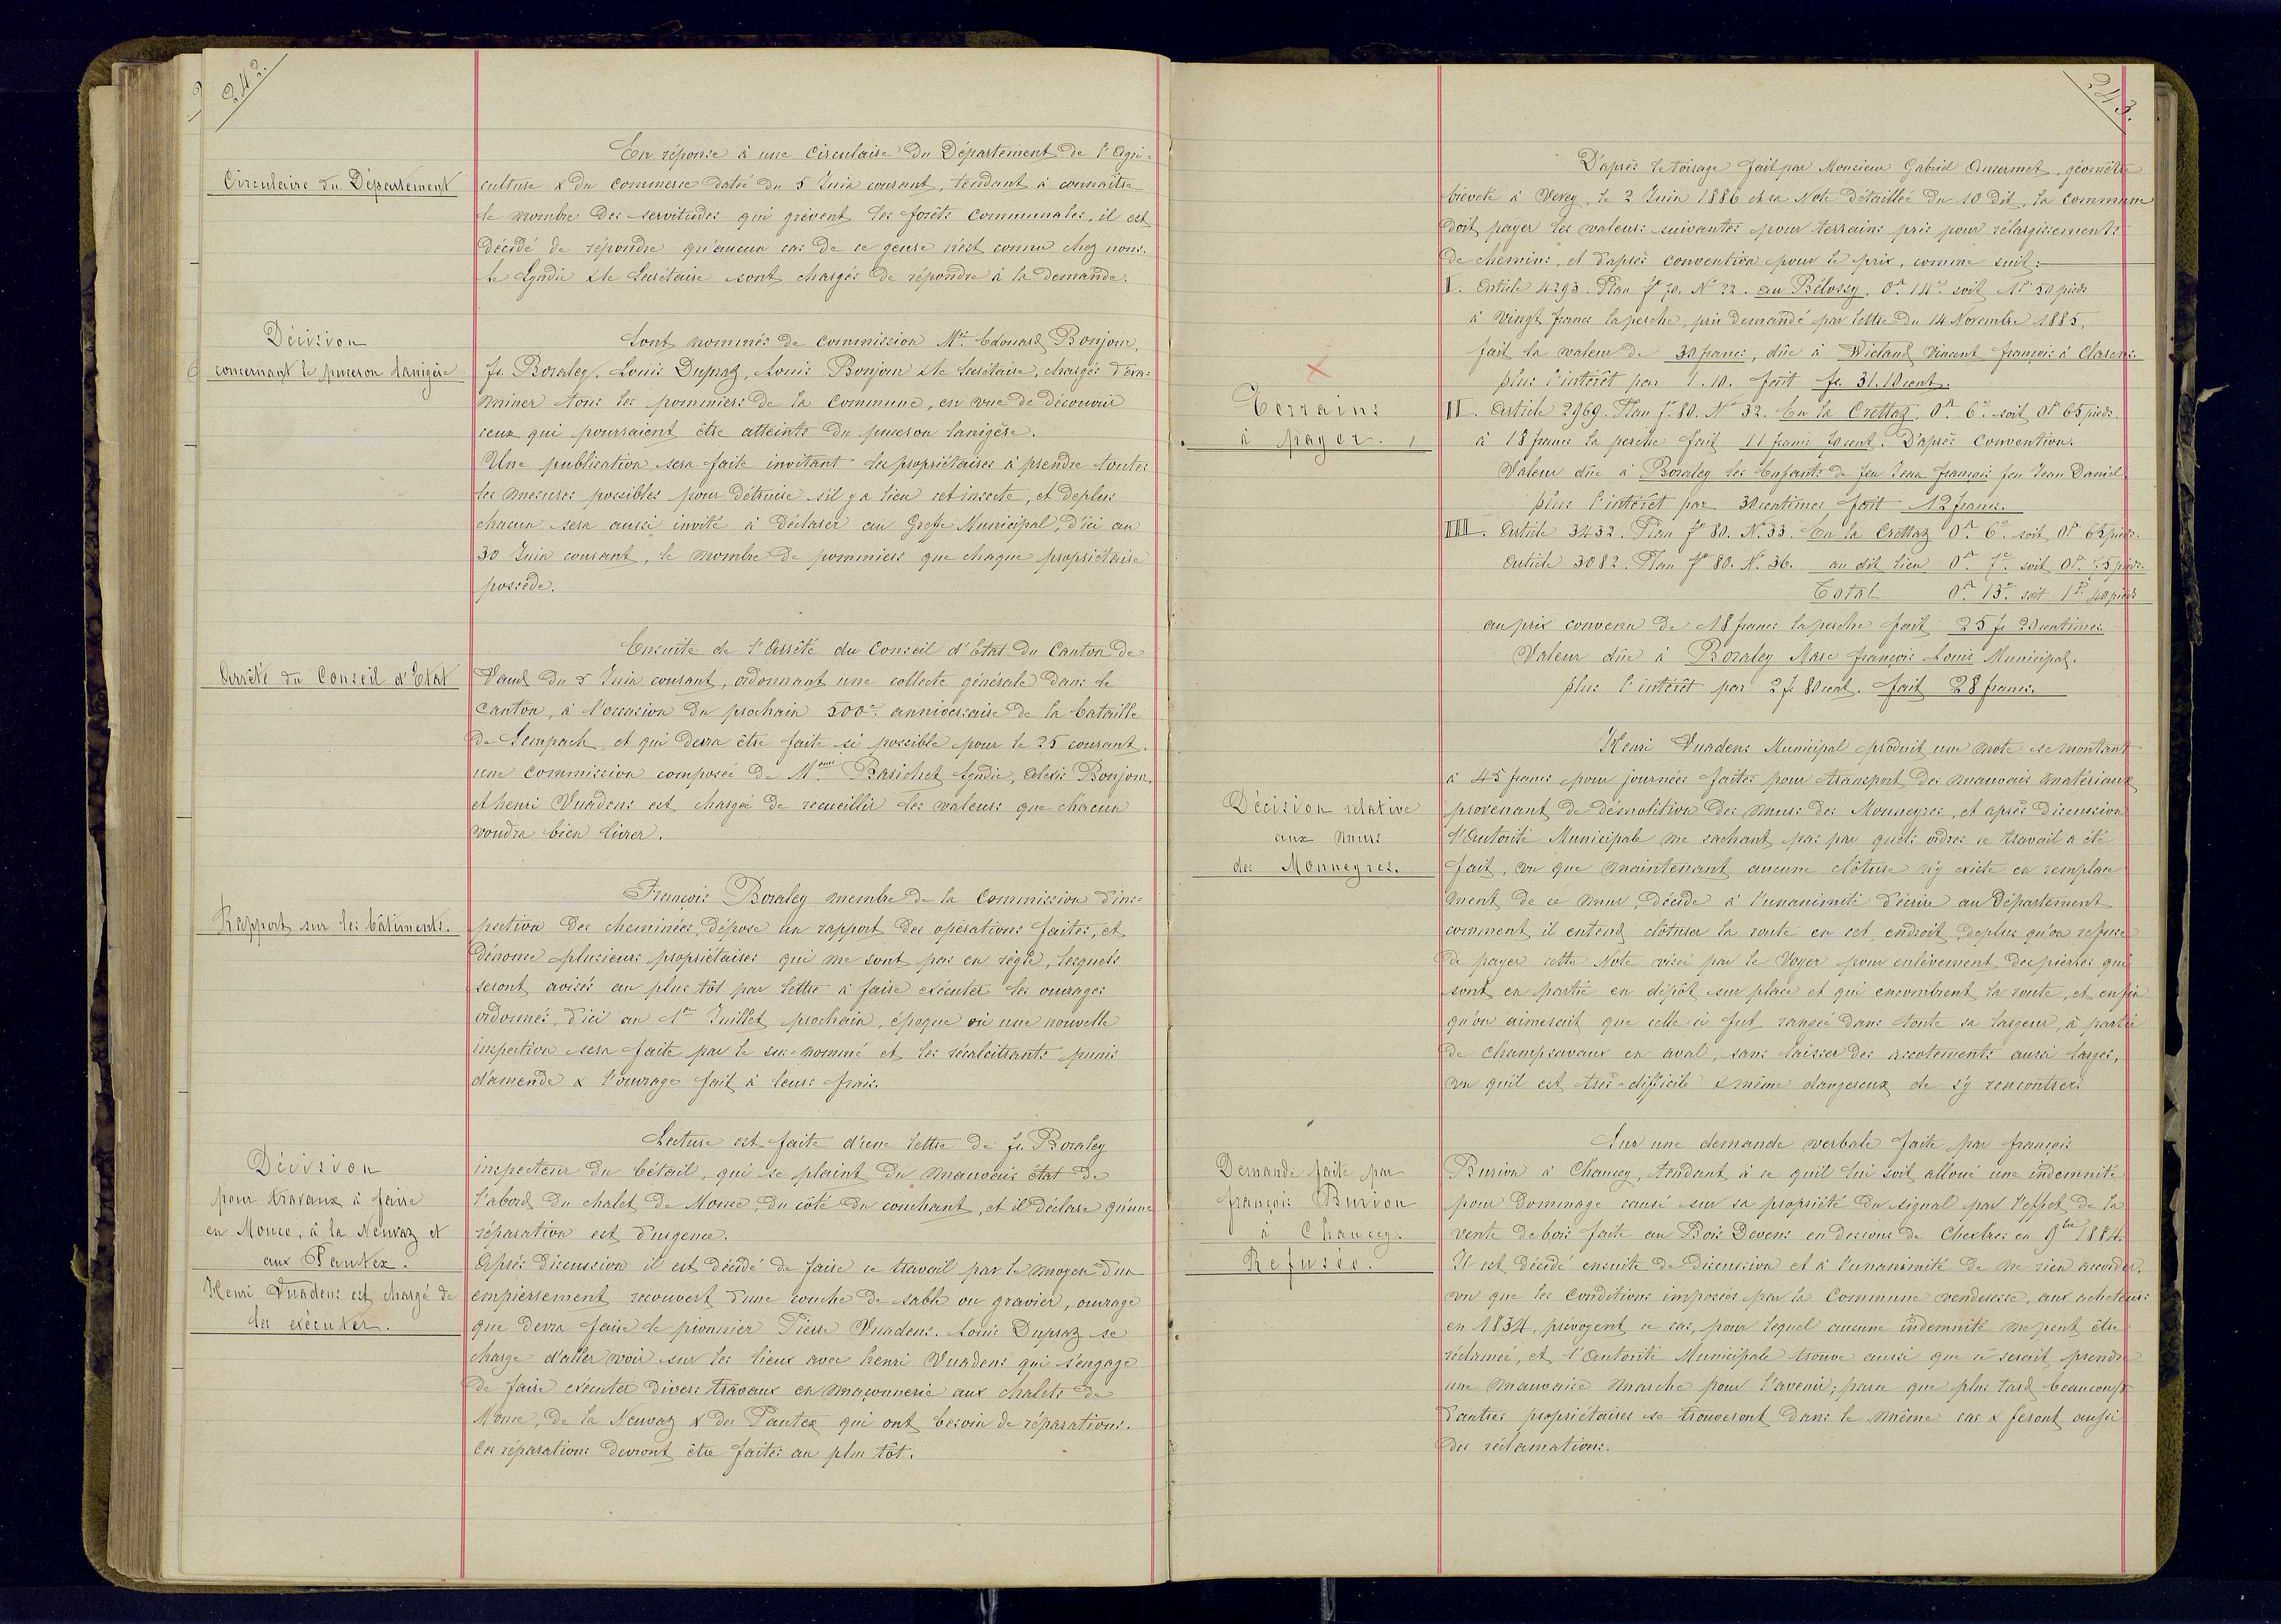 242.
Circulaire du Département
En réponse à une Circulaire du Département de l'Agri=
culture & du Commerce datée du 5 Juin courant, tendant à connaître
le nombre des servitudes qui grèvent les forêts Communales, il est
décidé de répondre qu'aucun cas de ce genre n'est connu chez nous.
Le Syndic & le Secrétaire sont chargés de répondre à la demande.
Décision
concernant le puceron lanigère
Sont nommés de Commission Mrs. Edouard Bonjour,
fs. Boraley, Louis Dupraz, Louis Bonjour & le Secrétaire, chargés d'exa=
miner tous les pommiers de la Commune, en vue de découvrir
ceux qui pourraient être atteints du puceron lanigère.
Une publication sera faite invitant les propriétaires à prendre toutes
les mesures possibles pour détruire s'il y a lieu cet insecte, et deplus
chacun sera aussi invité à déclarer au Greffe Municipal, d'ici au
30 Juin courant, le nombre de pommiers que chaque propriétaire
possède.
Arrêté du Conseil d'Etat
Ensuite de l'Arrêté du Conseil d'Etat du Canton de
Vaud du 5 Juin courant, ordonnant une collecte générale dans le
Canton, à l'occasion du prochain 500e anniversaire de la bataille
de Sempach, et qui devra être faite si possible pour le 25 courant.
une Commission composée de M. Barichet Syndic, Alexis Bonjour,
et henri Vuadens est chargée de recueillir les valeurs que chacun
voudra bien livrer.
Rapport sur les bâtiments.
François Boraley membre de la Commission d'ins=
pection des cheminées, dépose un rapport des opérations faites, et
dénonce plusieurs propriétaires qui ne sont pas en règle, lesquels
seront avisés au plus tôt par lettre à faire exécuter les ouvrages
ordonnés, d'ici au 1er Juillet prochain, époque où une nouvelle
inspection sera faite par le sus=nommé et les récalcitrants punis
d'amende & l'ouvrage fait à leurs frais.
Décision
pour travaux à faire
en Mouce, à la Neuvaz et
aux Pautex.
Henri Vuadens est chargé de
les exécuter.
Lecture est faite d'une lettre de fs. Boraley
inspecteur du bétail, qui se plaint du mauvais état de
l'abord du chalet de Mouce, du côté du couchant, et il déclare qu'une
réparation est d'urgence.
Après discussion il est décidé de faire ce travail par le moyen d'un
empierrement recouvert d'une couche de sable ou gravier, ouvrage
que devra faire le pionnier Pierre Vuadens. Louis Dupraz se
charge d'aller voir sur les lieux avec henri Vuadens qui s'engage
de faire exécuter divers travaux en maçonnerie aux chalets de
Mouce, de la Neuvaz & des Pautex qui ont besoin de réparations.
Ces réparations devront être faites au plus tôt.
243.
Terrains
à payer.
D'après le toisage fait par Monsieur Gabriel Ansermet, géomètre
brèveté à Vevey, le 2 Juin 1886 et sa Note détaillée du 10 dit, la commune
doit payer les valeurs suivantes pour terrains pris pour rélargissements
de chemins, et d'après convention pour le prix, comme suit:
I. Article 4293. Plan fo 70. No 22. au Bélossy, 0a 14c soit 1P 50 pieds
à vingt francs la perche, prix demandé par lettre du 14 Novembre 1885,
fait la valeur de 30 francs, dûe à Wieland Vincent françois à Clarens
plus l'intérêt par 1.10. fait fs. 31.10 cent.
II. Article 2969. Plan fo 80. No 32. En la Crettaz, 0a 6c soit 0P 65 pieds.
à 18 francs la perche fait 11 francs 70 cent. D'après Convention.
Valeur dûe à Boraley les Enfants de feu Jean françois feu Jean Daniel.
plus l'intérêt par 30 centimes, fait 12 francs.
III. Article 3432. Plan fo 80. No. 33. En la Crettaz 0a 6c soit 0P 65 pieds.
Article 3082. Plan fo 80. No. 36. au dit lieu 0a 7c soit 0P. 75 pieds.
Total 0a 13c. soit 1P. 40 pieds
au prix convenu de 18 francs la perche fait 25 fs 20 centimes.
Valeur dûe à Boraley Marc françois Louis Municipal.
plus l'intérêt par 2 fs 80 cent. fait 28 francs.
Décision relative
aux murs
des Monneyres.
Henri Vuadens Municipal produit une note se montant
à 45 francs pour journées faites pour transport des mauvais matériaux
provenant de démolition des murs des Monneyres, et après discussion
l'Autorité Municipale ne sachant pas par quels ordres ce travail a été
fait, vu que maintenant aucune clôture n'y existe en remplace
ment de ce mur, décide à l'unanimité d'écrire au Département
comment il entend clôturer la route en cet endroit, deplus qu'on refuse
de payer cette Note visée par le Voyer pour enlèvement des pierres qui
sont en partie en dépôt sur place et qui encombrent la route, et enfin
qu'on aimerait que celle-ci fut rangée dans toute sa largeur, à partir
de Champsavaux en aval, sans laisser des accotements aussi larges,
vu qu'il est très=difficile & même dangereux de s'y rencontrer.
Demande faite par
françois Burion
à Chaucey.
Refusée.
Sur une demande verbale faite par françois
Burion à Chaucey, tendant à ce qu'il lui soit alloué une indemnité
pour dommage causé sur sa propriété du signal par l'effet de la
vente de bois faite au Bois Devens en dessous de Chexbres en 9bre 1884.
Il est décidé ensuite de discussion et à l'unanimité de ne rien accorder,
vu que les Conditions imposées par la Commune venderesse, aux acheteurs
en 1834, prévoyent ce cas, pour lequel aucune indemnité ne peut être
réclamée, et l'Autorité Municipale trouve aussi que ce serait prendre
une mauvaise marche pour l'avenir; parce que plus tard beaucoup
d'autres propriétaires se trouveront dans le même cas & feront aussi
des réclamations.